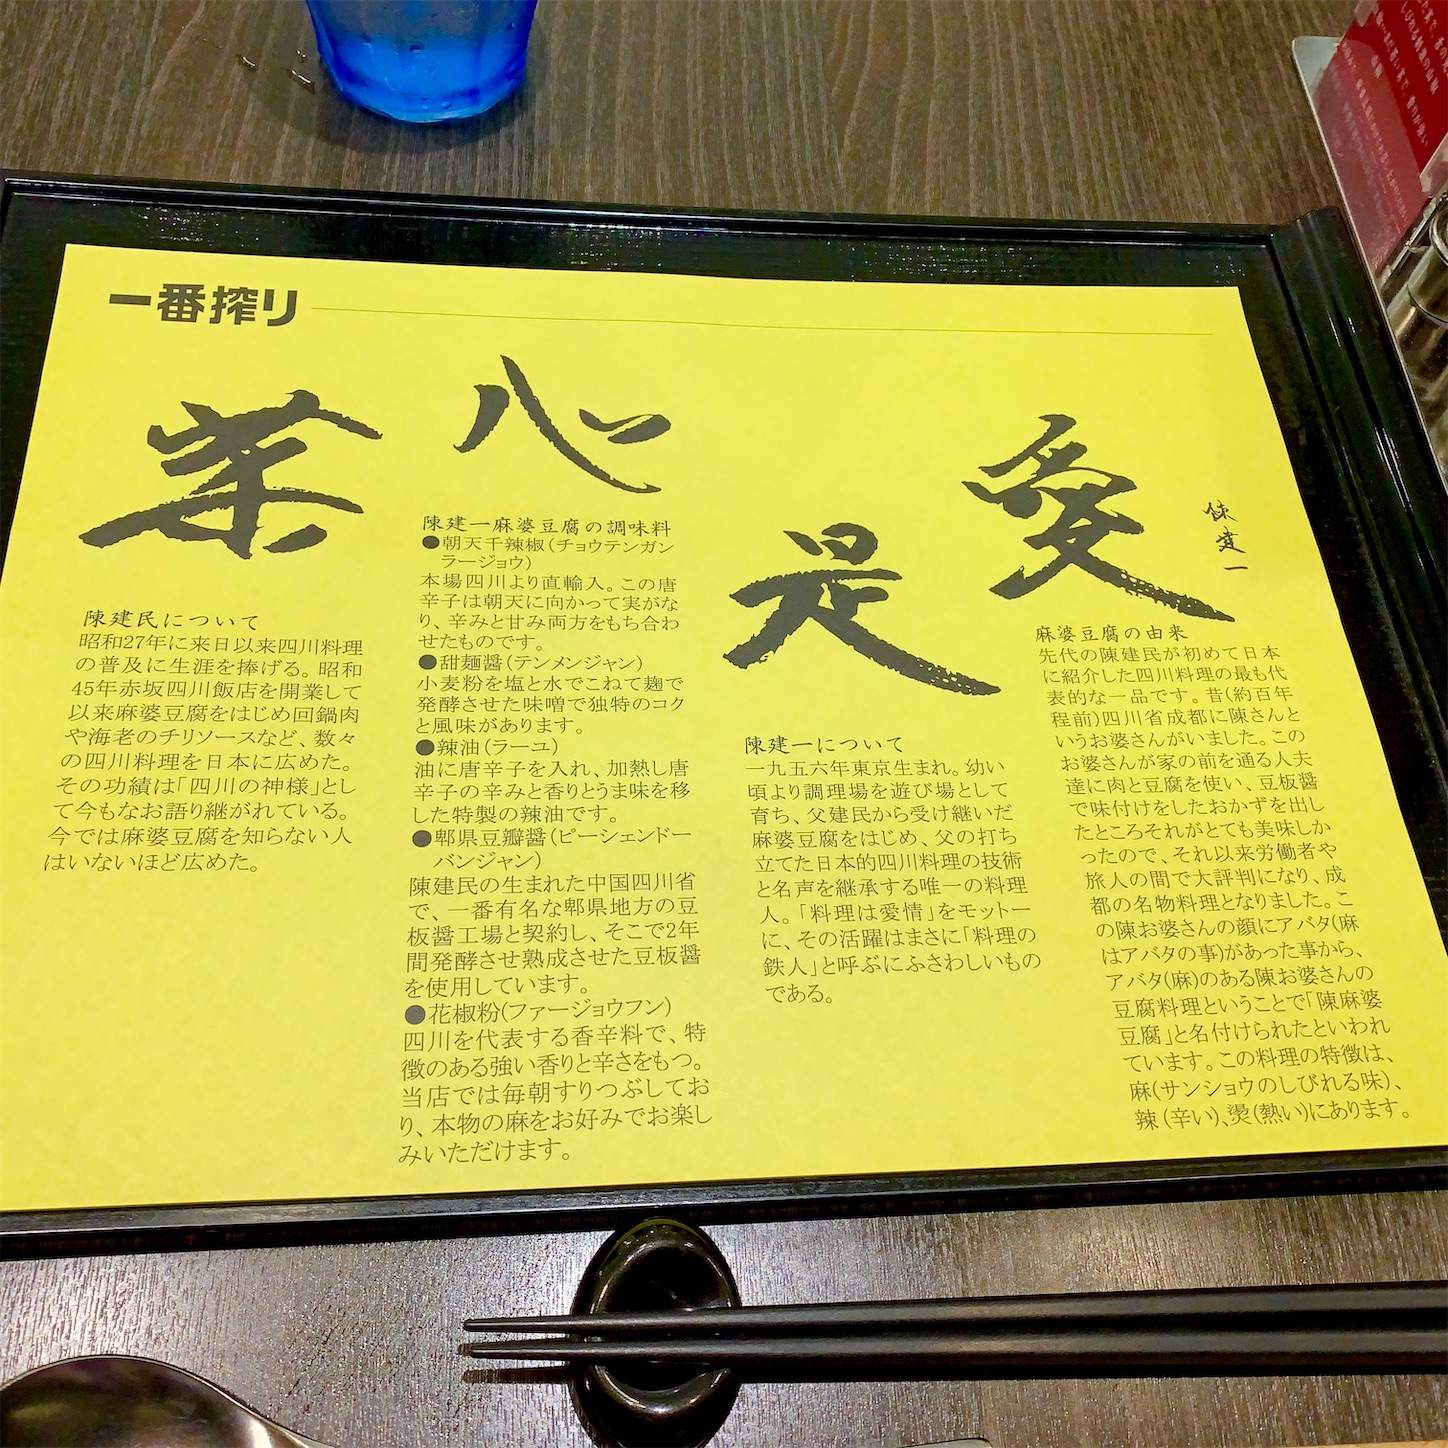 一番搾り
菜
心
是
愛
陳建一
陳建民について
昭和27年に来日以来四川料理
の普及に生涯を捧げる。昭和
45年赤坂四川飯店を開業して
以来麻婆豆腐をはじめ回鍋肉
や海老のチリソースなど、数々
の四川料理を日本に広めた。
その功績は「四川の神様」とし
て今もなお語り継がれている。
今では麻婆豆腐を知らない人
はいないほど広めた。
陳建一麻婆豆腐の調味料
●朝天干辣椒(チョウテンガン
ラージョウ)
本場四川より直輸入。この唐
辛子は朝天に向かって実がな
り、辛みと甘み両方をもち合わ
せたものです。
●甜麺醤(テンメンジャン)
小麦粉を塩と水でこねて麹で
発酵させた味噌で独特のコク
と風味があります。
●辣油(ラーユ)
油に唐辛子を入れ、加熱し唐
辛子の辛みと香りとうま味を移
した特製の辣油です。
●郫県豆瓣醤(ピーシェンドー
バンジャン)
陳建民の生まれた中国四川省
で、一番有名な郫県地方の豆
板醤工場と契約し、そこで2年
間発酵させ熟成させた豆板醤
を使用しています。
●花椒粉(ファージョウフン)
四川を代表する香辛料で、特
徴のある強い香りと辛さをもつ。
当店では毎朝すりつぶしてお
り、本物の麻をお好みでお楽し
みいただけます。
陳建一について
一九五六年東京生まれ。幼い
頃より調理場を遊び場として
育ち、父建民から受け継いだ
麻婆豆腐をはじめ、父の打ち
立てた日本的四川料理の技術
と名声を継承する唯一の料理
人。「料理は愛情」をモットー
に、その活躍はまさに「料理の
鉄人」と呼ぶにふさわしいもの
である。
麻婆豆腐の由来
先代の陳建民が初めて日本
に紹介した四川料理の最も代
表的な一品です。昔(約百年
程前)四川省成都に陳さんと
いうお婆さんがいました。この
お婆さんが家の前を通る人夫
達に肉と豆腐を使い、豆板醤
で味付けをしたおかずを出し
たところそれがとても美味しか
ったので、それ以来労働者や
旅人の間で大評判になり、成
都の名物料理となりました。こ
の陳お婆さんの顔にアバタ(麻
はアバタの事)があった事から、
アバタ(麻)のある陳お婆さんの
豆腐料理ということで「陳麻婆
豆腐」と名付けられたといわれ
ています。この料理の特徴は、
麻(サンショウのしびれる味)、
辣(辛い)、燙(熱い)にあります。